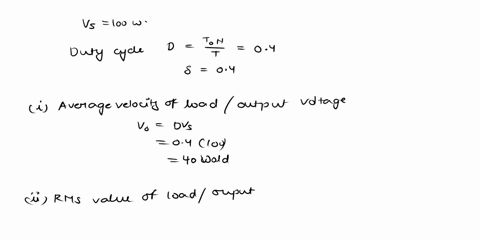 Vs = 100 w.
Duty cycle D = TON/T = 0.4
δ = 0.4
(i) Average velocity of load / output voltage
Vo = DVs
= 0.4 (100)
= 40 Wold
(ii) RMS value of load / ouput